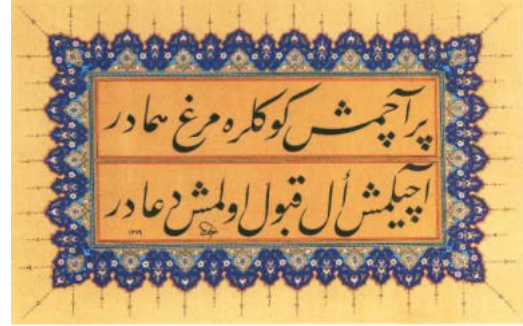 پر آچمش كوكلره مرغ هما در
آچيكمش أل قبول اولمش دعا در
١٣٧٩